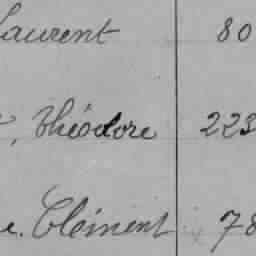 Laurent 80
, Théodore 223
e. Clément 78